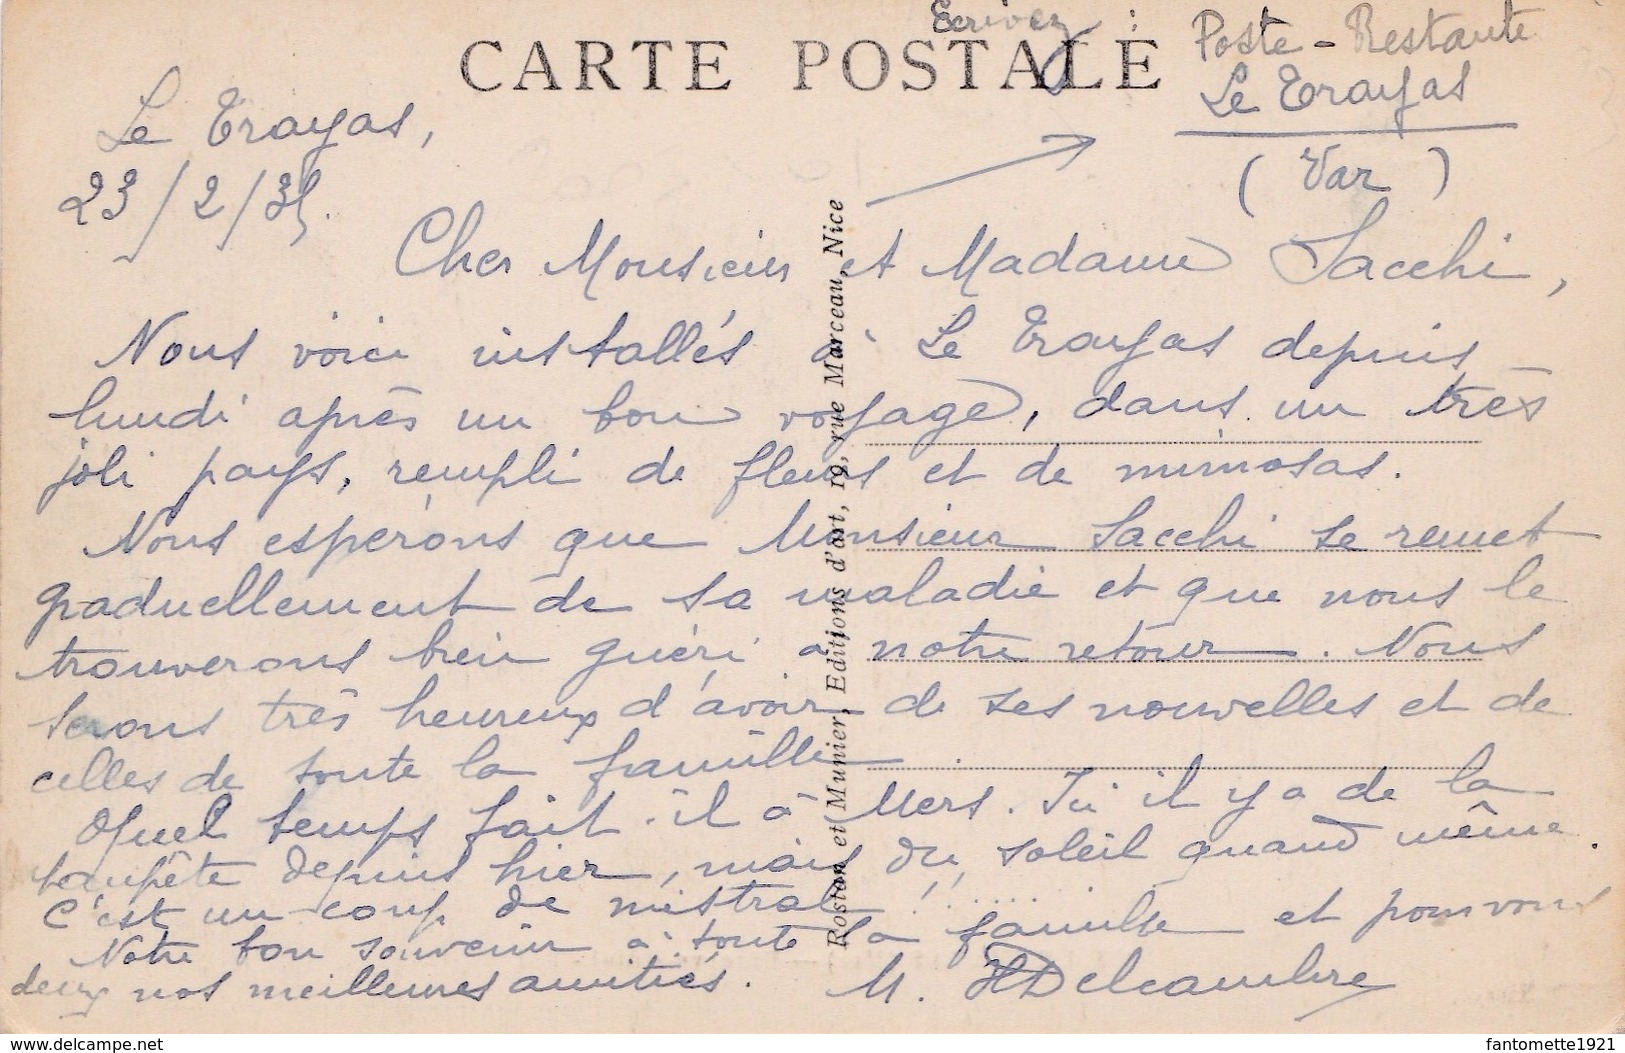 Ecrivez
CARTE POSTALE
Poste - Restante
Le Trayas
(Var)
Le Trayas,
23/2/35.
Cher Monsieur et Madame Sacchi,
Nous voici installés à Le Trayas depuis
lundi après un bon voyage, dans un très
joli pays, rempli de fleurs et de mimosas.
Nous espérons que Monsieur Sacchi se remet
graduellement de sa maladie et que nous le
trouverons bien guéri à notre retour. Nous
serons très heureux d'avoir de ses nouvelles et de
celles de toute la famille.
Quel temps fait-il à Mers. Ici il y a de la
tempête depuis hier, mais du soleil quand même.
C'est un coup de mistral!......
Notre bon souvenir à toute la famille et pour vous
deux nos meilleures amitiés. M. Delcambre
Rostan et Munier, Editions d'art, 19, rue Marceau, Nice
www.delcampe.net
fantomette1921